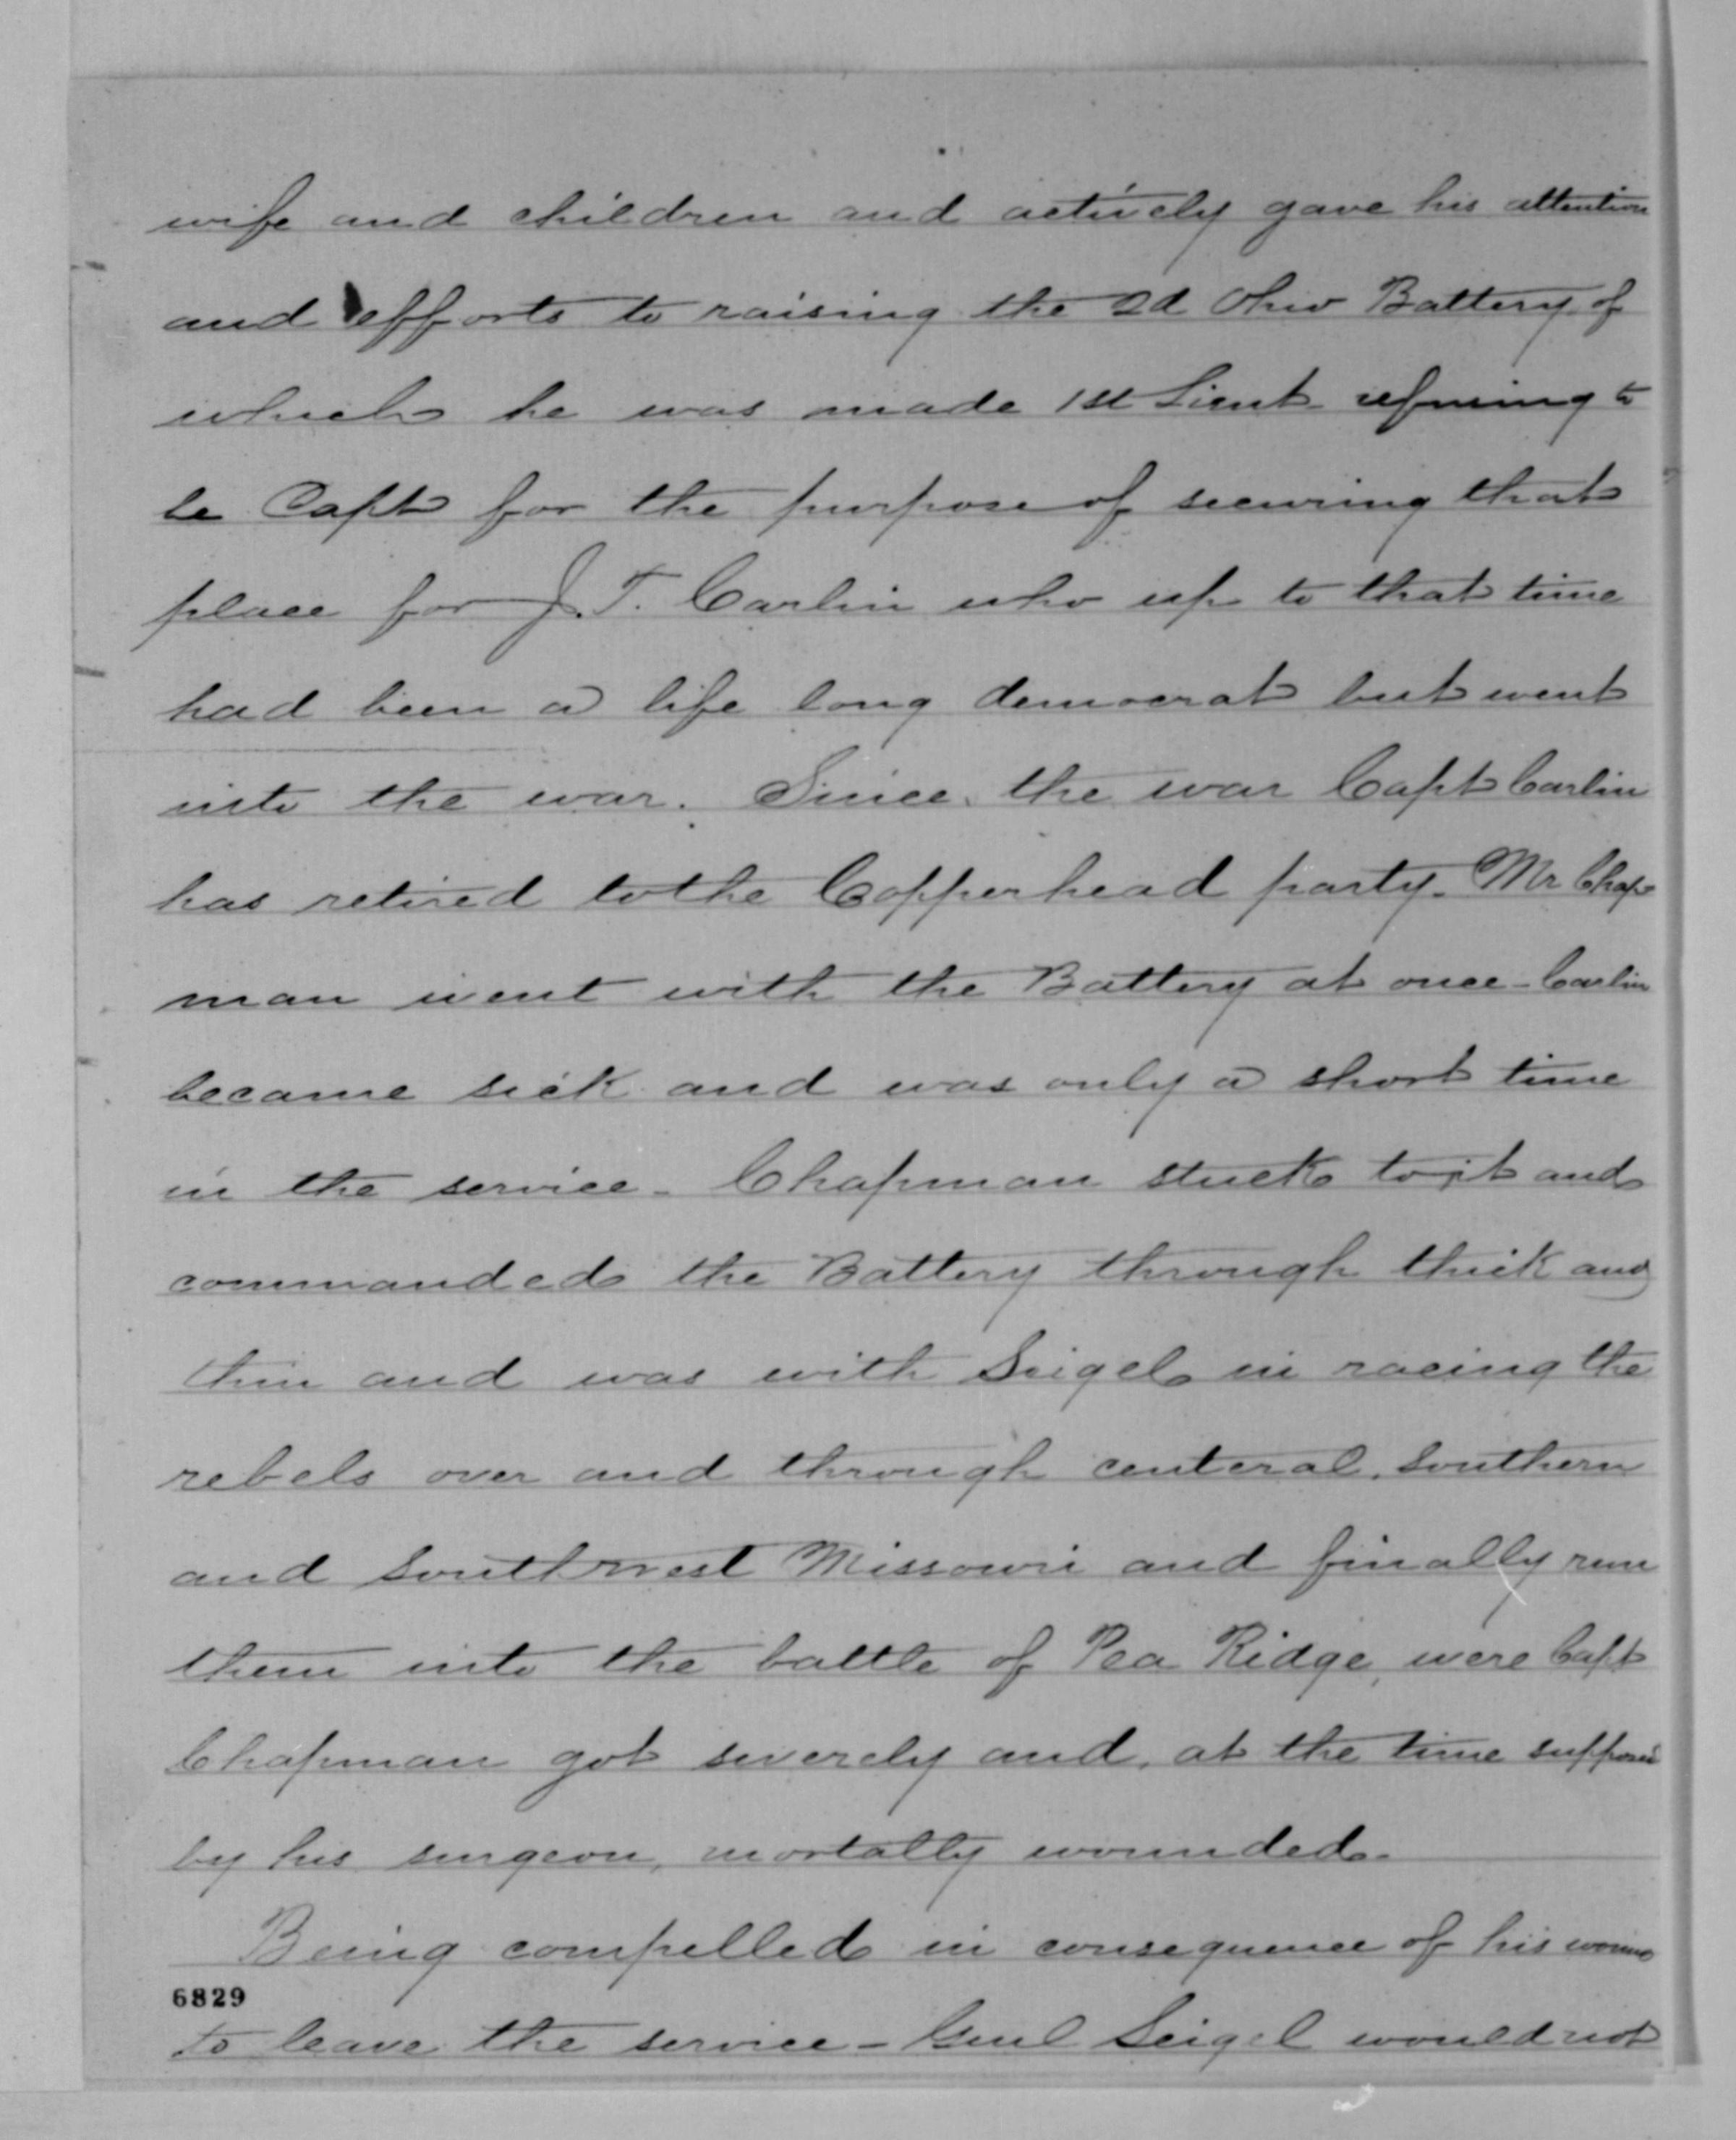 wife and children and actively gave his attention
and efforts to raising the 2d Ohio Battery of
which he was made 1st Lieut refusing to
be Capt for the purpose of securing that
place for J. T. Carlin who up to that time
had been a life long democrat but went
into the war. Since the war Capt Carlin
has retired to the Copperhead party. Mr Chap
man went with the Battery at once - Carlin
became sick and was only a short time
in the service - Chapman stuck to it and
commanded the Battery through thick and
thin and was with Seigel in racing the
rebels over and through centeral, Southern
and Southwest Missouri and finally run
them into the battle of Pea Ridge, were Capt
Chapman got severely and, at the time supposed
by his surgeon, mortally wounded.
Being compelled in consequence of his wound
6829
to leave the service - Genl Seigel would not